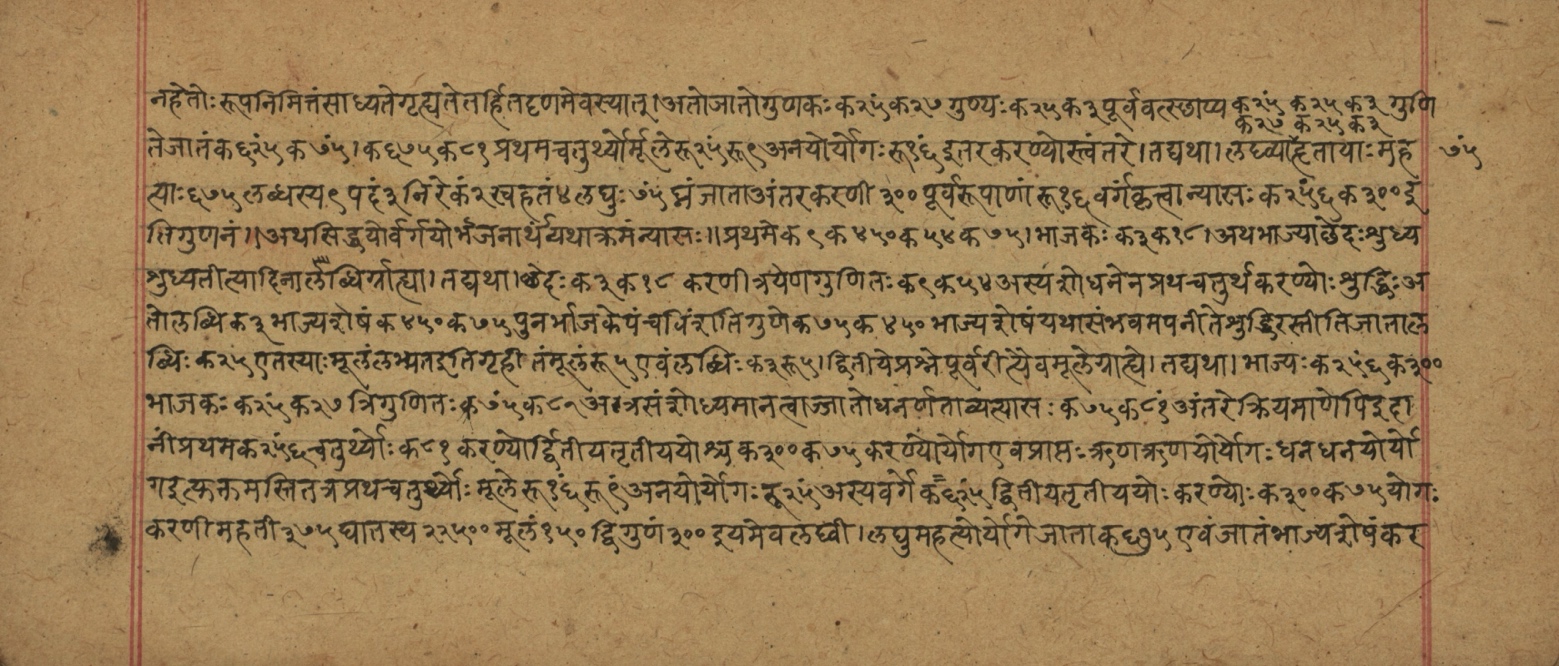 नहेतोः रूपनिमित्तंसाध्यतेगृह्यतेतर्हितदृणमेवस्यात्।अतोजातोगुणकः क२५ंक२७ गुण्यः क२५क३पूर्ववत्स्छाप्य क२५ं क२५क३ गुणि
क२७ क२५क३
तेजातंक६२५ंक७५ं।क६७५क८१ प्रथमचतुर्थ्योर्मूलेरू२५ंरू९अनयोर्योगः रू१६ंइतरकरण्योस्त्वंतरे।तद्यथा।लघ्व्याहृतायाःमह ७५ं
त्याः६७५लब्धस्य९पदं३निरेकं२स्वहतं४लघुः७५ंघ्नंजाताअंतरकरणी३००पूर्वरूपाणां रू१६वर्गंकृत्वान्यासः क२५ं६क३००इ
तिगुणनं।।अथसिद्धयोर्वर्गयोर्भजनार्थंयथाक्रमंन्यासः॥प्रथमेक९क४५०क५४क७५।भाजकः क३क१८।अथभाज्याछेदःशुध्य
शुध्यतीत्यादिनालब्धिर्ग्राह्या।तद्यथा।छेदः क३क१८ करणीत्रयेणगुणितः क९क५४अस्यशोधनेनप्रथचतुर्थकरण्योः शुद्धिःअ
तोलब्धिक३भाज्यशेषंक४५०क७५पुनर्भाजकेपंचविंशतिगुणेक७५क४५०भाज्यशेषंयथासंभवमपनीतेशुद्धिरस्तीतिजाताल
ब्धिः क२५एतस्याःमूलंलभ्यतइतिगृहीतंमूलंरू५एवंलब्धिः क३रू५।द्वितीयेप्रश्नेपूर्वरीत्यैवमूलेग्राह्ये।तद्यथा।भाज्यः क२५ं६क३००
भाजकः क२५ंक२७ त्रिगुणितः क७५ंक८१अत्रसंशोध्यमानत्वाज्जातोधनर्णताव्यत्यासः क७५क८१ं अंतरेक्रियमाणेपिइदा
नींप्रथमक२५ं६चतुर्थ्योः क८१ करण्योर्द्वितीयतृतीययोश्च क३००क७५करण्योर्योगएवंप्राप्तःऋणऋणयोर्योगःधनधनयोर्यो
गइत्युक्तमस्तितत्रप्रथचतुर्थ्योःमूलेरू१६ंरू९ंअनयोर्योगःरू२५ंअस्यवर्गेक६२५ंद्वितीयतृतीययोःकरण्योःक३००क७५योगः
करणीमहती३७५घातस्य२२५००मूलं१५०द्विगुणं३००इयमेवलघ्वी।लघुमहत्योर्योगेजाताक६७५एवंजातंभाज्यशेषंकर